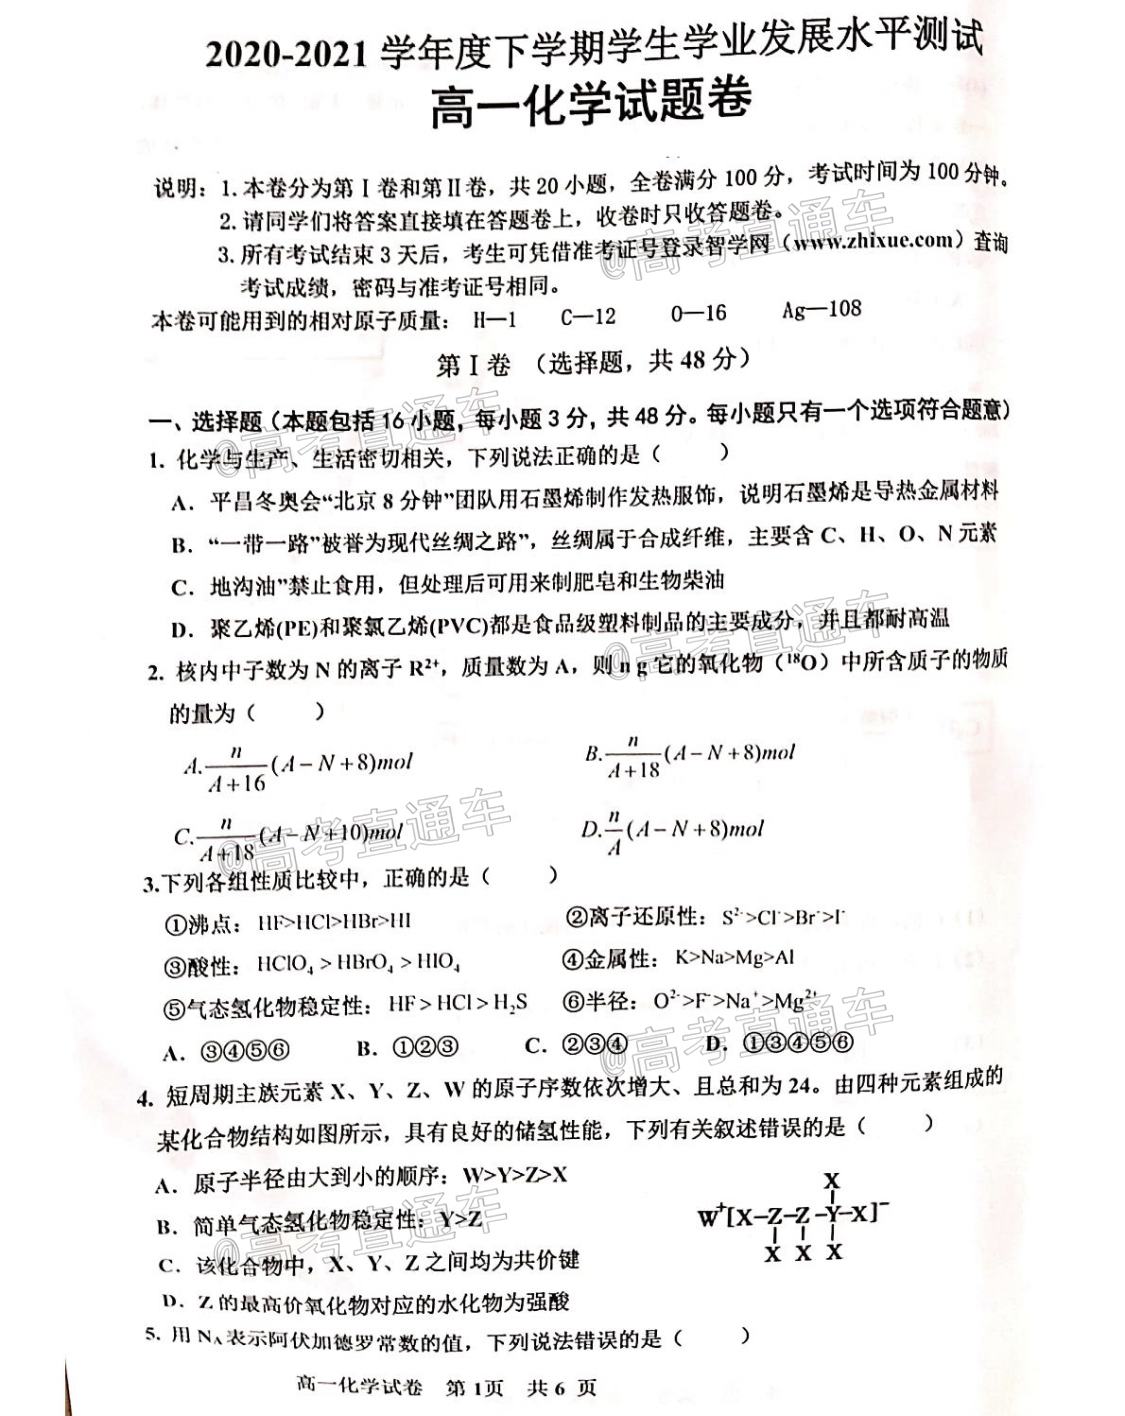 2020-2021 学年度下学期学生学业发展水平测试
高一化学试题卷
说明：1. 本卷分为第Ⅰ卷和第Ⅱ卷，共 20 小题，全卷满分 100 分，考试时间为 100 分钟。
2. 请同学们将答案直接填在答题卷上，收卷时只收答题卷。
3. 所有考试结束 3 天后，考生可凭借准考证号登录智学网（www.zhixue.com）查询
考试成绩，密码与准考证号相同。
本卷可能用到的相对原子质量： H—1 C—12 O—16 Ag—108
第Ⅰ卷 （选择题，共 48 分）
一、选择题（本题包括 16 小题，每小题 3 分，共 48 分。每小题只有一个选项符合题意）
1. 化学与生产、生活密切相关，下列说法正确的是（ ）
A．平昌冬奥会“北京 8 分钟”团队用石墨烯制作发热服饰，说明石墨烯是导热金属材料
B．“一带一路”被誉为现代丝绸之路”，丝绸属于合成纤维，主要含 C、H、O、N 元素
C．地沟油”禁止食用，但处理后可用来制肥皂和生物柴油
D．聚乙烯(PE)和聚氯乙烯(PVC)都是食品级塑料制品的主要成分，并且都耐高温
2. 核内中子数为 N 的离子 R²⁺，质量数为 A，则 n g 它的氧化物（¹⁸O）中所含质子的物质
的量为（ ）
A. n/(A+16) (A−N+8)mol B. n/(A+18) (A−N+8)mol
C. n/(A+18) (A−N+10)mol D. n/A (A−N+8)mol
3.下列各组性质比较中，正确的是（ ）
①沸点：HF>HCl>HBr>HI ②离子还原性：S²⁻>Cl⁻>Br⁻>I⁻
③酸性：HClO₄ > HBrO₄ > HIO₄ ④金属性：K>Na>Mg>Al
⑤气态氢化物稳定性：HF > HCl > H₂S ⑥半径：O²⁻>F⁻>Na⁺>Mg²⁺
A．③④⑤⑥ B．①②③ C．②③④ D．①③④⑤⑥
4. 短周期主族元素 X、Y、Z、W 的原子序数依次增大、且总和为 24。由四种元素组成的
某化合物结构如图所示，具有良好的储氢性能，下列有关叙述错误的是（ ）
A．原子半径由大到小的顺序：W>Y>Z>X
B．简单气态氢化物稳定性：Y>Z
C．该化合物中，X、Y、Z 之间均为共价键
D．Z 的最高价氧化物对应的水化物为强酸
X
W⁺[X–Z–Z–Y–X]⁻
X X X
5. 用 N_A 表示阿伏加德罗常数的值，下列说法错误的是（ ）
高一化学试卷 第 1页 共 6 页
@高考直通车
@高考直通车
@高考直通车
@高考直通车
@高考直通车
@高考直通车